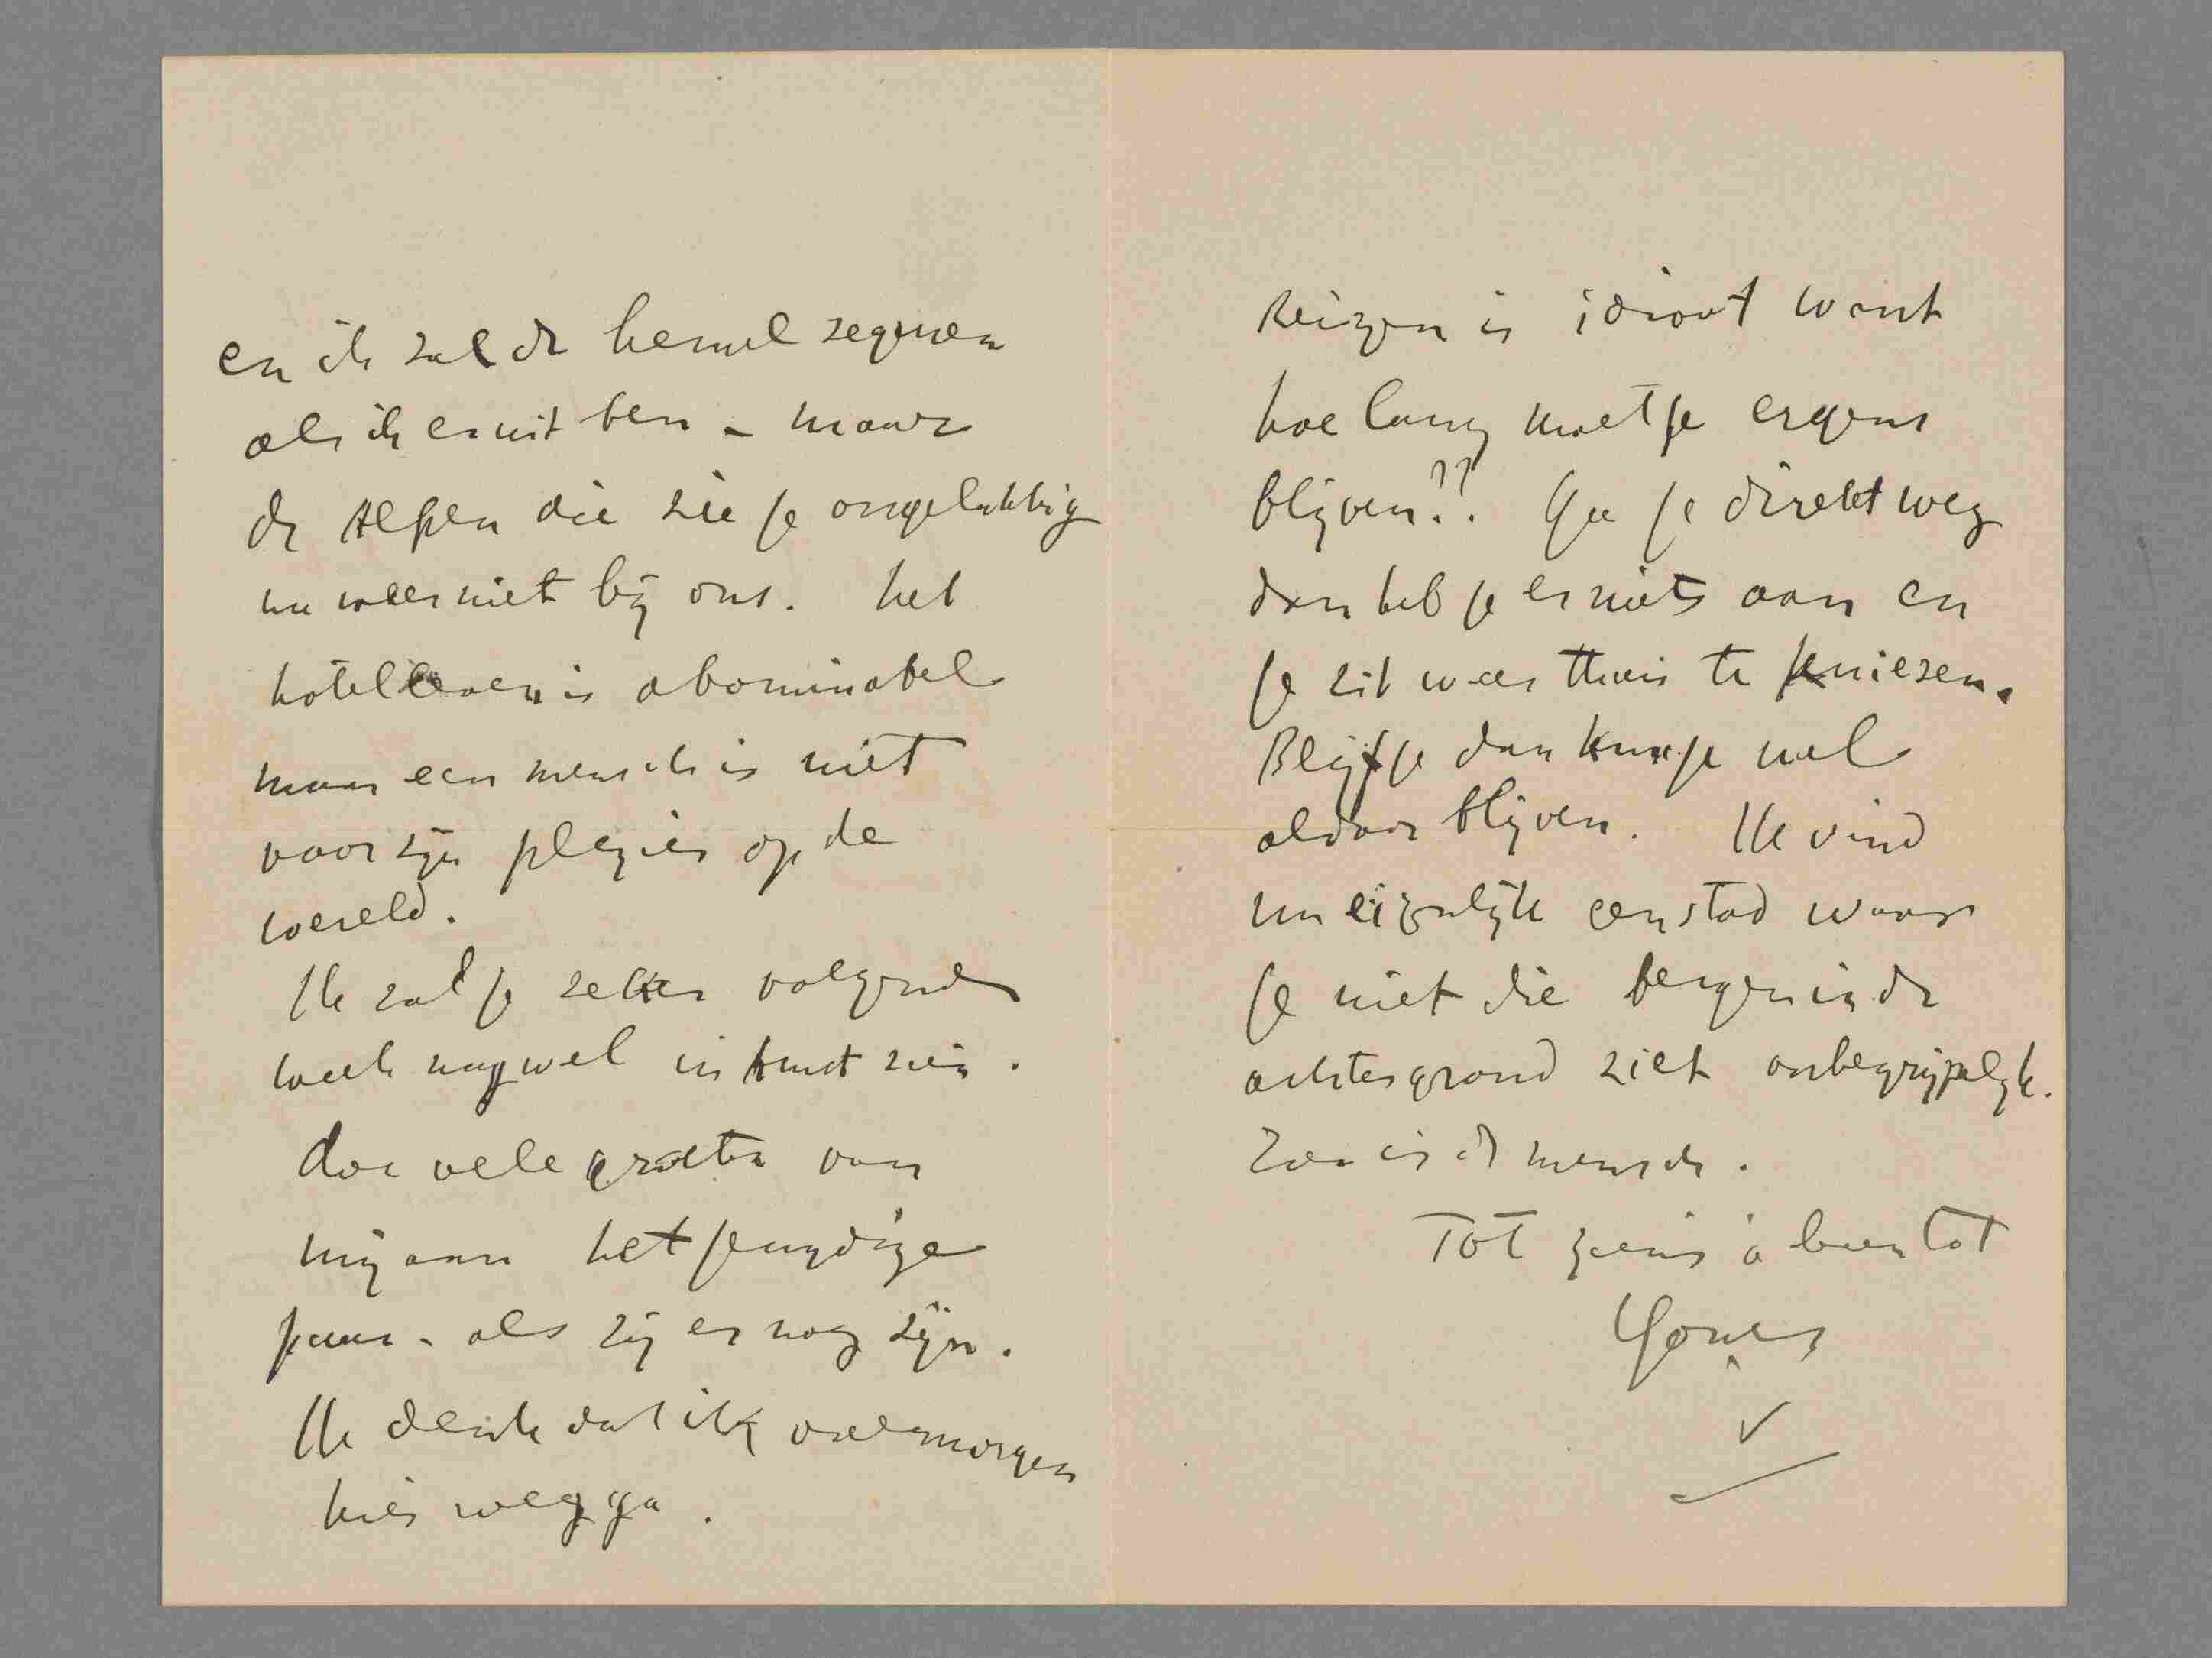 en ik zal de hemel zegenen
als ik eruit ben - maar
de Alpen die zie je ongelukkig
nu weer niet bij ons. het
hotelleven is abominabel
maar een mensch is niet
voor zijn plezier op de
wereld.
Ik zal je zeker volgende
week nog wel in kunst zien.
doe vele groeten van
mij aan het jeugdige
paar - als zij er nog zijn.
Ik denk dat ik overmorgen
hier weg ga.
Reizen is idioot want
hoe lang moet je ergens
blijven?? Ga je direkt weg
dan heb je er niets aan en
je zit weer thuis te kniezen.
Blijf je dan kun je wel
aldoor blijven. Ik vind
nu eigenlijk een stad waar
je niet die bergen in de
achtergrond ziet onbegrijpelijk.
Zoo is de mensch.
Tot ziens à bientot